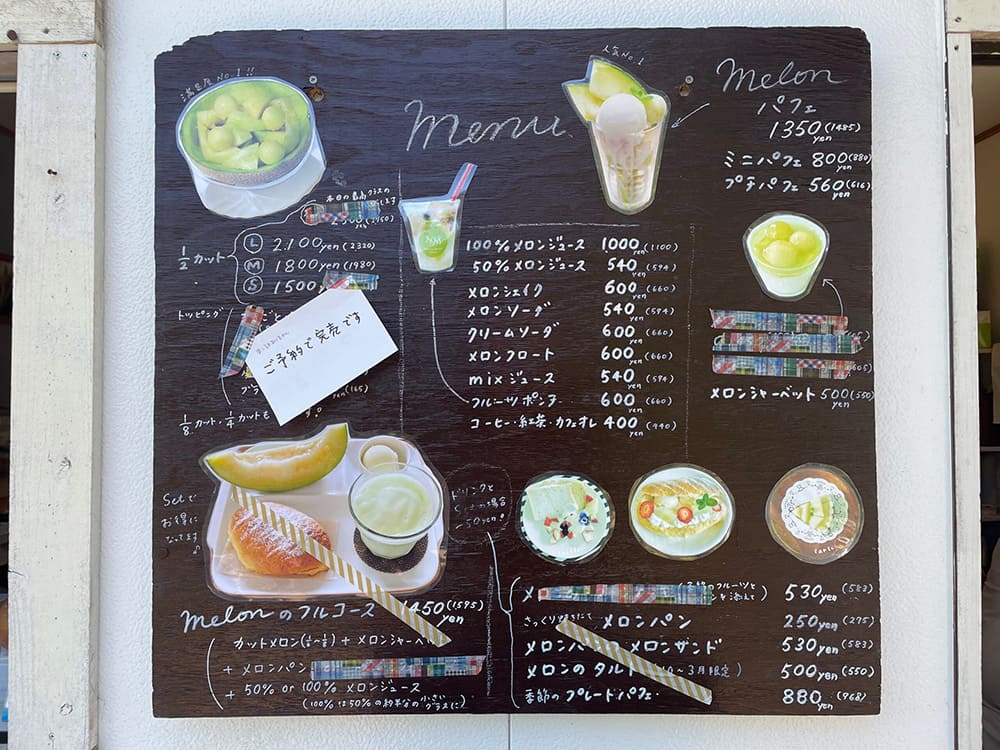 満足度 No.1!!
人気No.1
Menu
Melon
パフェ
1350yen(1485)
ミニパフェ 800(880)
プチパフェ 560yen(616)
本日の最高グラスの
1/2カット
L 2.100yen(2320)
M 1800yen(1980)
S 1500
トッピング
ご予約で完売です
yen(165)
1/8カット、1/4カットも
100%メロンジュース 1000yen(1100)
50%メロンジュース 540(594)
メロンシェイク 600yen(660)
メロンソーダ 540(594)
クリームソーダ 600yen(660)
メロンフロート 600yen(660)
mixジュース 540yen(594)
フルーツポンチ 600yen(660)
コーヒー・紅茶・カフェオレ 400yen(440)
メロンシャーベット 500yen(550)
Setで
お得に
なってます♪
ドリンクと
の場合
-50yen!
Melonのフルコース 1450yen(1595)
カットメロン(1/4~1/8)+メロンシャーベ
+ メロンパン
+ 50% or 100% メロンジュース
(100%は50%の約半分の小さいグラスに)
メ
を添えて) 530yen(583)
メロンパン 250yen(275)
メロンパ メロンサンド 530yen(583)
メロンのタルト ~3月限定) 500yen(550)
季節のプレートパフェ 880yen(968)